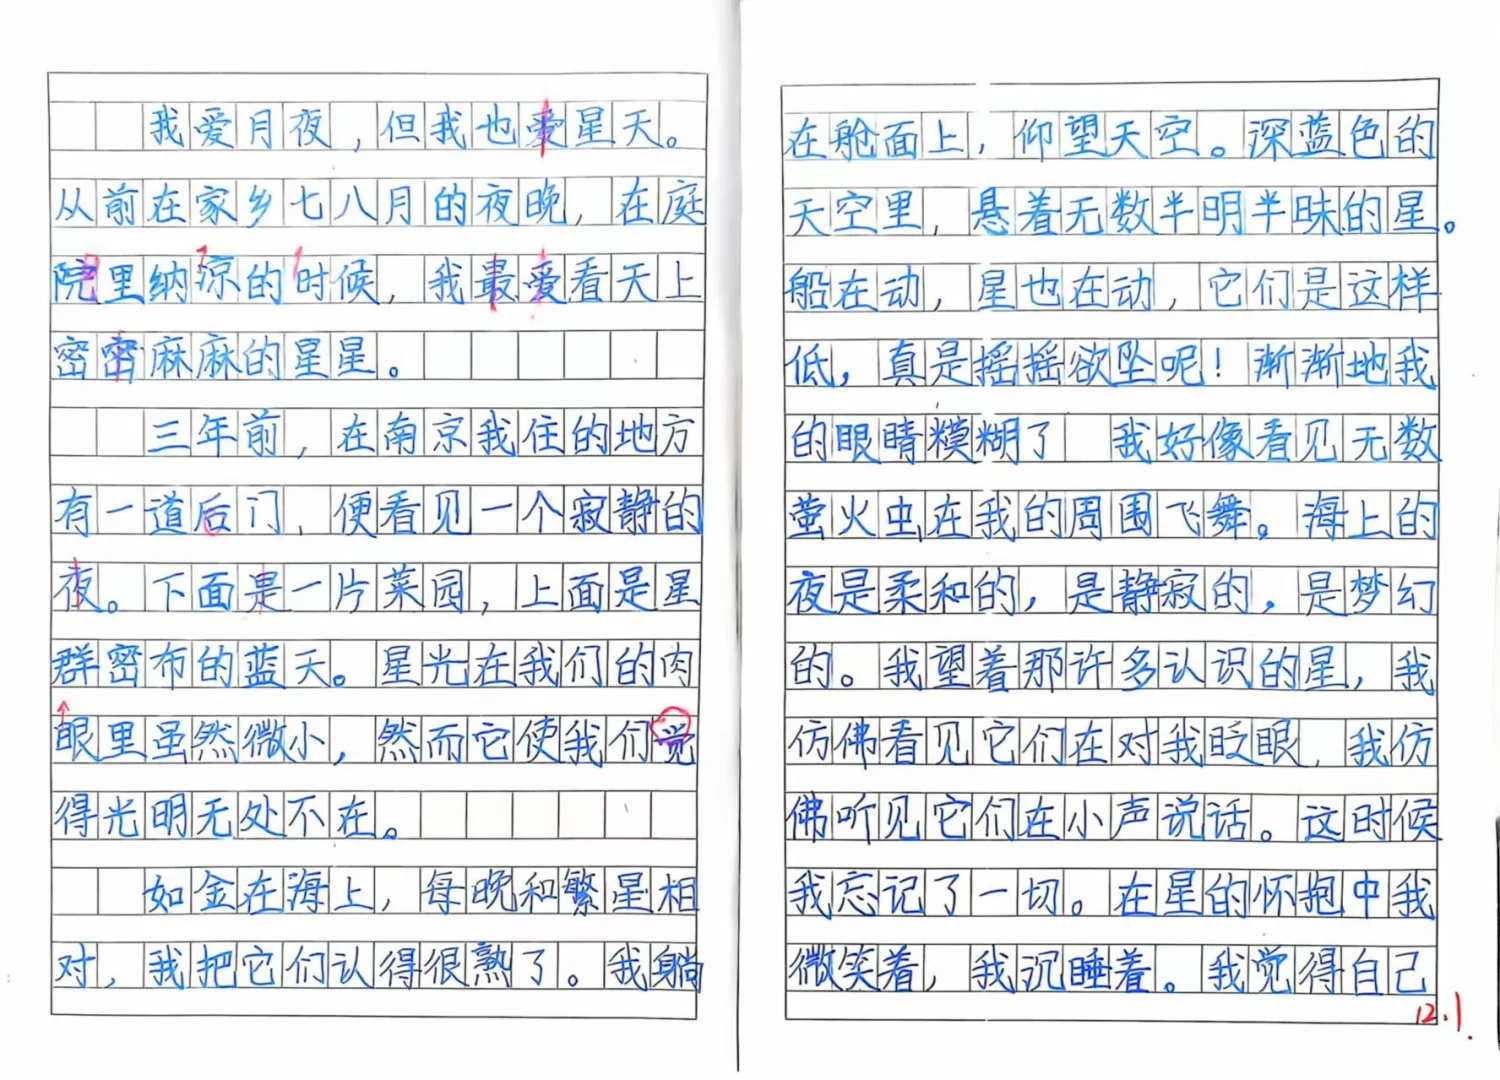 我爱月夜，但我也爱星天。
从前在家乡七八月的夜晚，在庭
院里纳凉的时候，我最爱看天上
密密麻麻的星星。
三年前，在南京我住的地方
有一道后门，便看见一个寂静的
夜。下面是一片菜园，上面是星
群密布的蓝天。星光在我们的肉
眼里虽然微小，然而它使我们觉
得光明无处不在。
如金在海上，每晚和繁星相
对，我把它们认得很熟了。我躺
在舱面上，仰望天空。深蓝色的
天空里，悬着无数半明半昧的星。
船在动，星也在动，它们是这样
低，真是摇摇欲坠呢！渐渐地我
的眼睛模糊了 我好像看见无数
萤火虫在我的周围飞舞。海上的
夜是柔和的，是静寂的，是梦幻
的。我望着那许多认识的星，我
仿佛看见它们在对我眨眼，我仿
佛听见它们在小声说话。这时候
我忘记了一切。在星的怀抱中我
微笑着，我沉睡着。我觉得自己
12.1